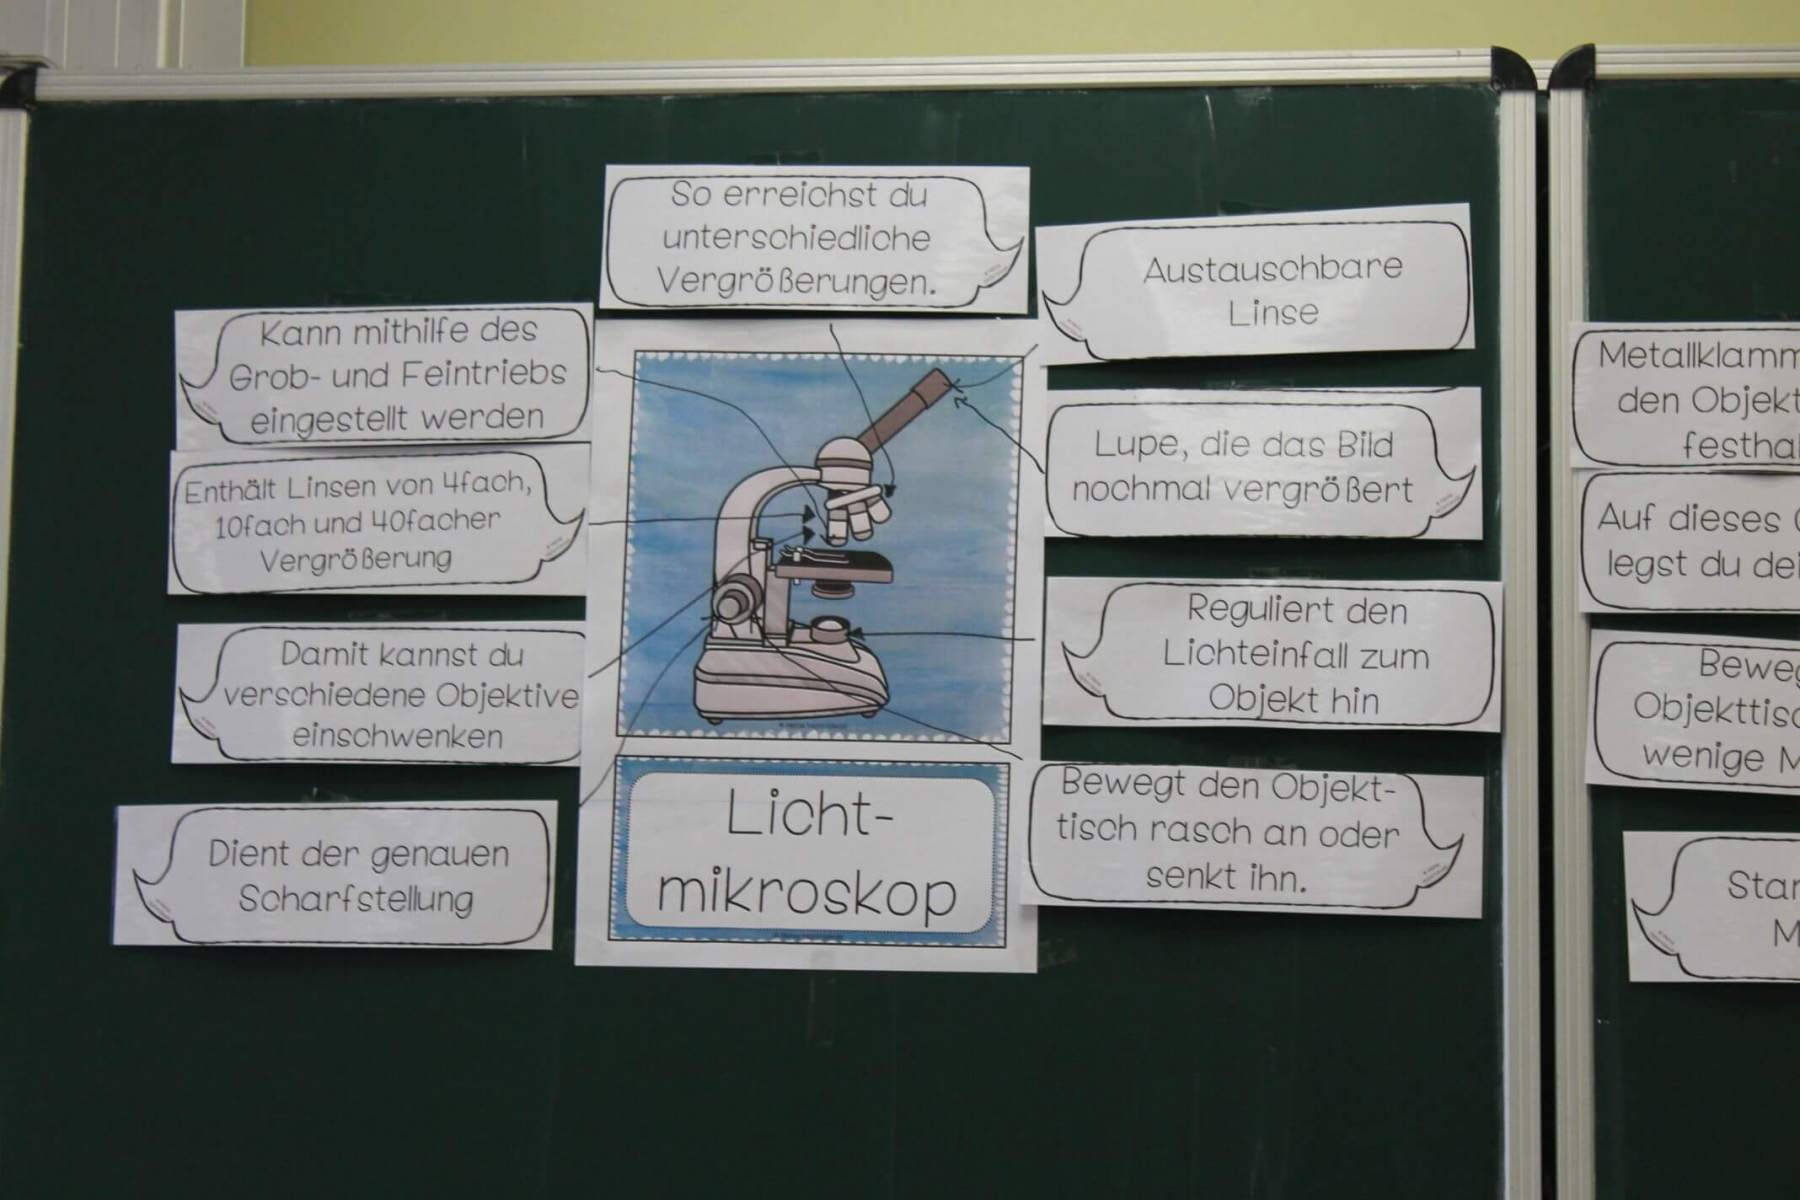 So erreichst du
unterschiedliche
Vergrößerungen.
Austauschbare
Linse
Kann mithilfe des
Grob- und Feintriebs
eingestellt werden
Lupe, die das Bild
nochmal vergrößert
Enthält Linsen von 4fach,
10fach und 40facher
Vergrößerung
Reguliert den
Lichteinfall zum
Objekt hin
Damit kannst du
verschiedene Objektive
einschwenken
Bewegt den Objekt-
tisch rasch an oder
senkt ihn.
Dient der genauen
Scharfstellung
Licht-
mikroskop
Metallklamm
den Objekt
festhal
Auf dieses
legst du dei
Beweg
Objekttisc
wenige M
Star
M